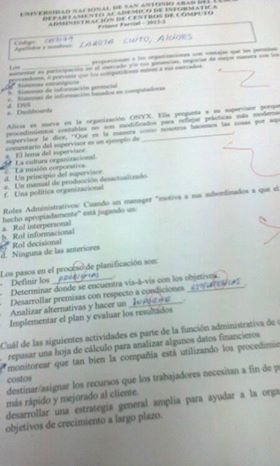 UNIVERSIDAD NACIONAL DE SAN ANTONIO ABAD DEL
DEPARTAMENTO ACADEMICO DE INFORMATICA
ADMINISTRACIÓN DE CENTROS DE CÓMPUTO
Primer Parcial - 2012-2
Código:
Apellidos y nombres:
Los proporcionan a las organizaciones con ventajas que les permiten
aumentar su participación en el mercado y/o sus ganancias, negociar de mejor manera con los
proveedores, o prevenir que los competidores entren a sus mercados.
Sistemas estratégicos
Sistemas de información gerencial
c. Sistemas de información basados en computadoras
d. DSS
e. Dashboards
Alicia es nueva en la organización ONYX. Ella pregunta a su supervisor porque
procedimientos contables no son modificados para reflejar prácticas más modernas
supervisor le dice, "Qué es la manera como nosotros hacemos las cosas por aquí"
comentario del supervisor es un ejemplo de
El lema del supervisor
La cultura organizacional.
c. La misión corporativa.
d. Un principio del supervisor
e. Un manual de producción desactualizado.
f. Una política organizacional
Roles Administrativos: Cuando un manager "motiva a sus subordinados a que el
hecho apropiadamente" está jugando un:
a. Rol interpersonal
Rol informacional
Rol decisional
d. Ninguna de las anteriores
Los pasos en el proceso de planificación son:
Definir los
Determinar donde se encuentra vis-à-vis con los objetivos.
Desarrollar premisas con respecto a condiciones
Analizar alternativas y hacer un
Implementar el plan y evaluar los resultados
Cuál de las siguientes actividades es parte de la función administrativa de
repasar una hoja de cálculo para analizar algunos datos financieros
monitorear que tan bien la compañía está utilizando los procedimientos
costos
destinar/asignar los recursos que los trabajadores necesitan a fin de
más rápido y mejorado al cliente.
desarrollar una estrategia general amplia para ayudar a la
objetivos de crecimiento a largo plazo.